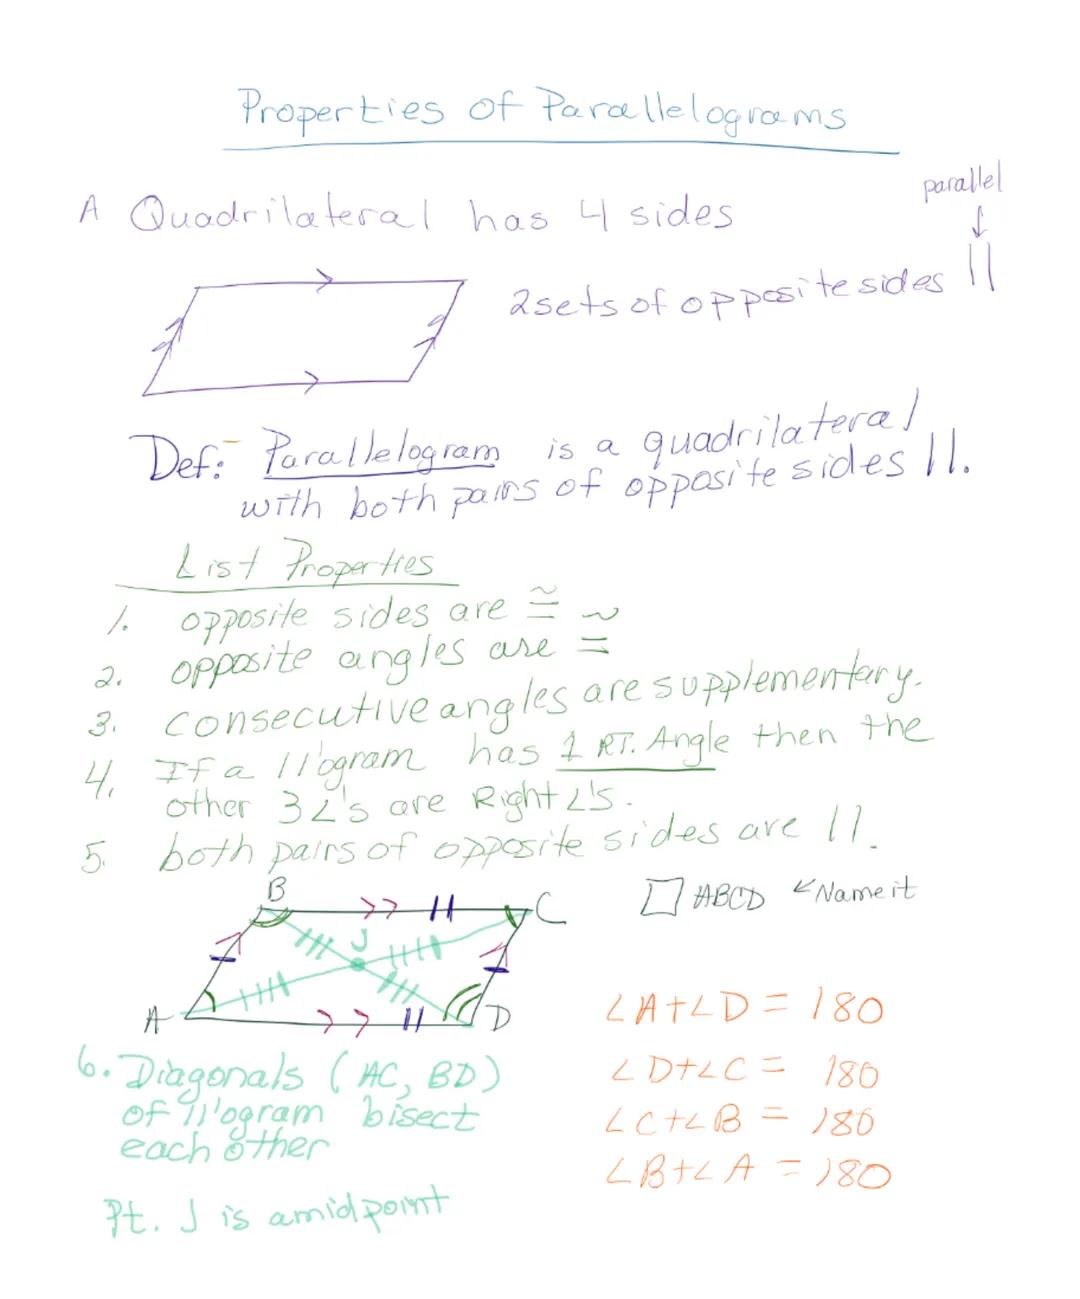 Properties of Parallelograms
parallel
↓
A Quadrilateral has 4 sides
2 sets of opposite sides ||
Def:- Parallelogram is a quadrilateral
with both pairs of opposite sides ||.
List Properties
1. opposite sides are ≅
2. opposite angles are ≅
3. consecutive angles are supplementary.
4. If a ||'ogram has 1 RT. Angle then the
other 3 ∠'s are Right ∠'s.
5. both pairs of opposite sides are ||.
B
C
▱ ABCD ← Name it
J
A
D
∠A+∠D = 180
∠D+∠C = 180
∠C+∠B = 180
∠B+∠A = 180
6. Diagonals (AC, BD)
of ||'ogram bisect
each other
Pt. J is a midpoint